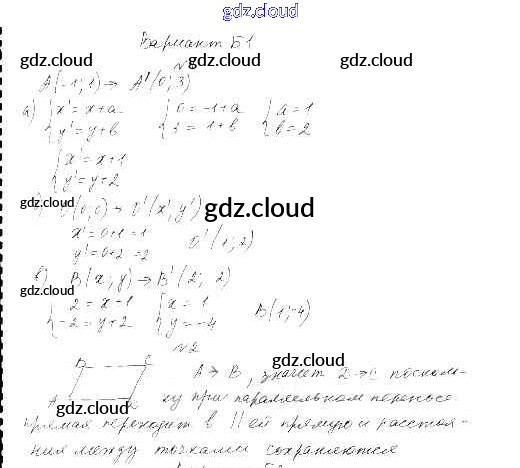 gdz.cloud
Вариант Б1
gdz.cloud gdz.cloud gdz.cloud
A(-1; 1) → A'(0; 3)
а) { x' = x + a { 0 = -1 + a { a = 1
{ y' = y + b { 3 = 1 + b { b = 2
{ x' = x + 1
{ y' = y + 2
gdz.cloud
O(0; 0) → O'(x'; y')
gdz.cloud
x' = 0+1 = 1
y' = 0+2 = 2 O'(1; 2)
в) B(x; y) → B'(2; 2)
gdz.cloud
{ 2 = x + 1 { x = 1
{ -2 = y + 2 { y = -4 B(1; -4)
№2
gdz.cloud
B C
A → B, значит D → C посколь-
A
ку при параллельном переносе
gdz.cloud
прямая переходит в || ей прямую и расстоя-
ния между точками сохраняются